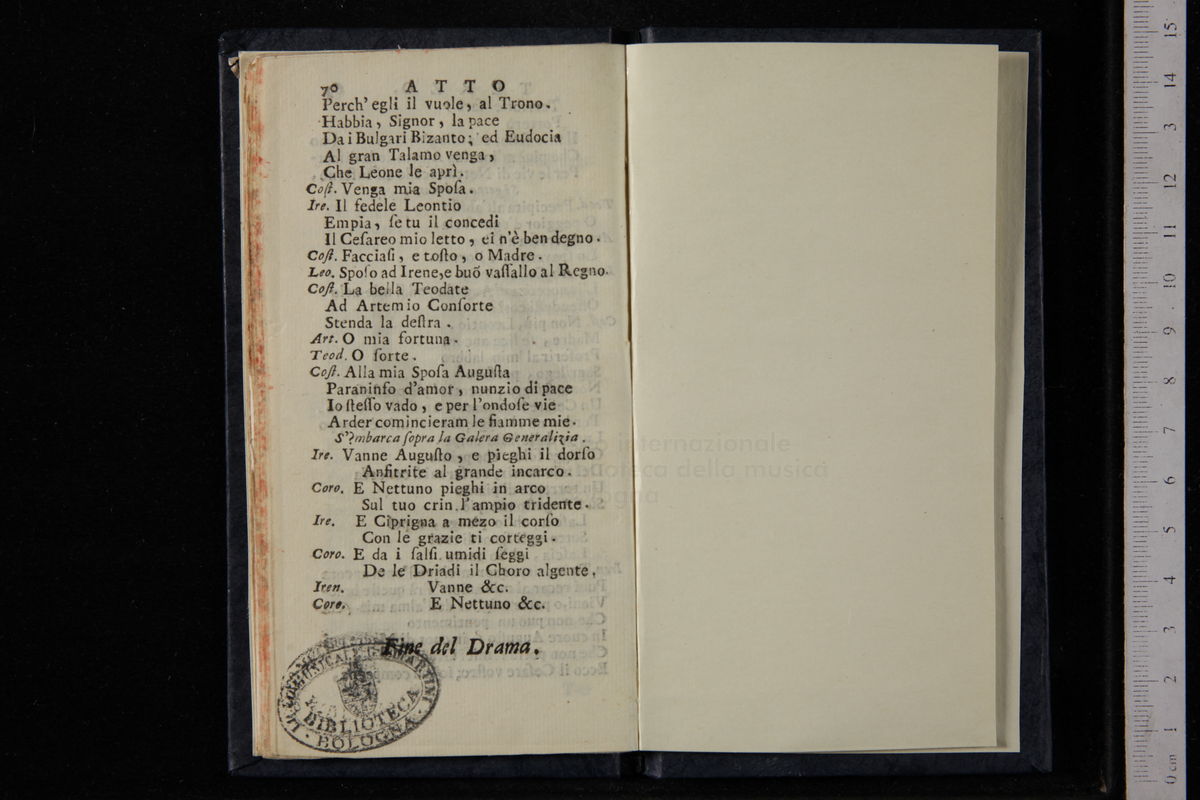 70 ATTO
Perch' egli il vuole, al Trono.
Habbia, Signor, la pace
Da i Bulgari Bizanto; ed Eudocia
Al gran Talamo venga,
Che Leone le aprì.
Coſt. Venga mia Spoſa.
Ire. Il fedele Leontio
Empia, ſe tu il concedi
Il Ceſareo mio letto, ei n'è ben degno.
Coſt. Facciaſi, e toſto, o Madre.
Leo. Spoſo ad Irene, e buõ vaſſallo al Regno.
Coſt. La bella Teodate
Ad Artemio Conſorte
Stenda la deſtra.
Art. O mia fortuna.
Teod. O ſorte.
Coſt. Alla mia Spoſa Auguſta
Paraninfo d'amor, nunzio di pace
Io ſteſſo vado, e per l'ondoſe vie
Arder comincieram le fiamme mie.
S'imbarca ſopra la Galera Generalizia.
Ire. Vanne Auguſto, e pieghi il dorſo
Anfitrite al grande incarco.
Coro. E Nettuno pieghi in arco
Sul tuo crin l'ampio tridente.
Ire. E Ciprigna a mezo il corſo
Con le grazie ti corteggi.
Coro. E da i ſalſi umidi ſeggi
De le Driadi il Choro algente.
Iren. Vanne &c.
Coro. E Nettuno &c.
Fine del Drama.
LICEO COMUNALE G. B. MARTINI
BIBLIOTECA
BOLOGNA
internazionale
della musica
0 cm 1 2 3 4 5 6 7 8 9 10 11 12 13 14 15